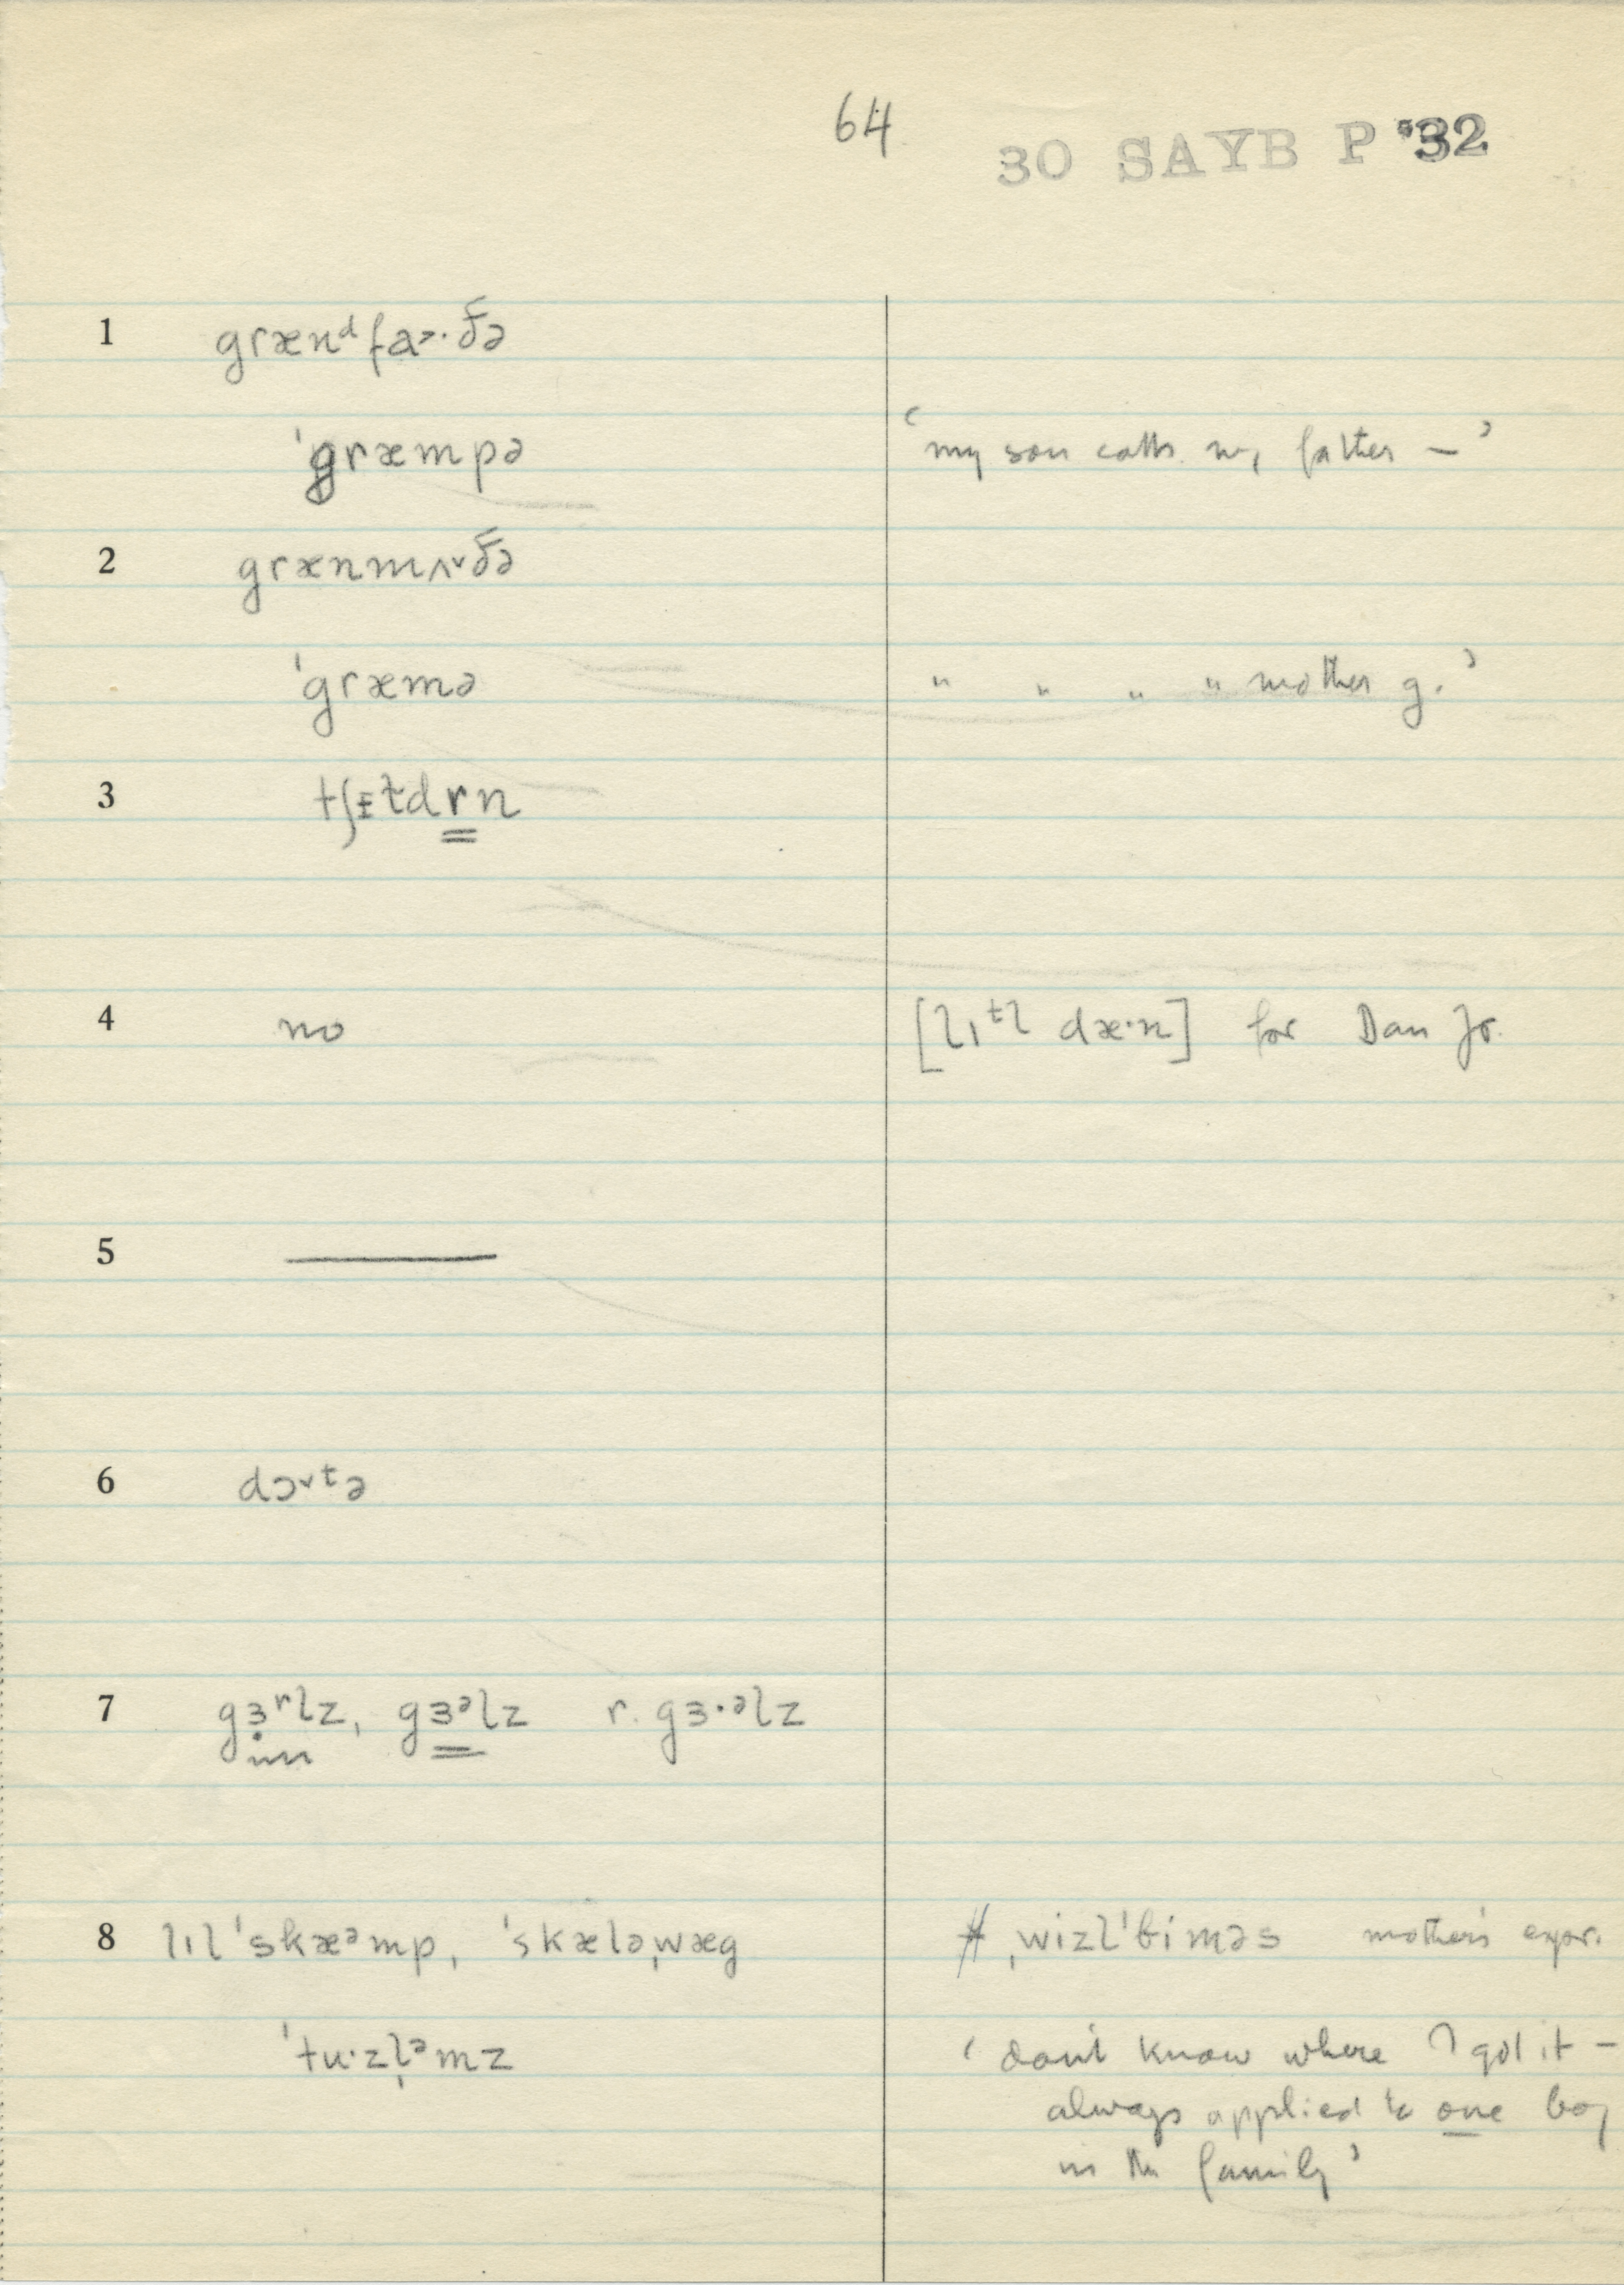 64
30 SAYB P '32
1 grænᵈfa˃·ðə
ˈgræmpə ‘my son calls my father –’
2 grænmʌ˅ðə
ˈgræmə " " " " mother g.’
3 tʃɪɫdrn
4 no [lɪᵗl dæ·n] for Dan Jr.
5 ———
6 dɔ˅ᵗə
7 gɜʳlz, gɜᵊlz r. gɜ·ᵊlz
8 lɪl ˈskæᵊmp, ˈskæləˌwæg # ˌwizlˈbiməs mother's expr.
ˈtu·zl̩ᵊmz ‘don't know where I got it –
always applied to one boy
in the family’